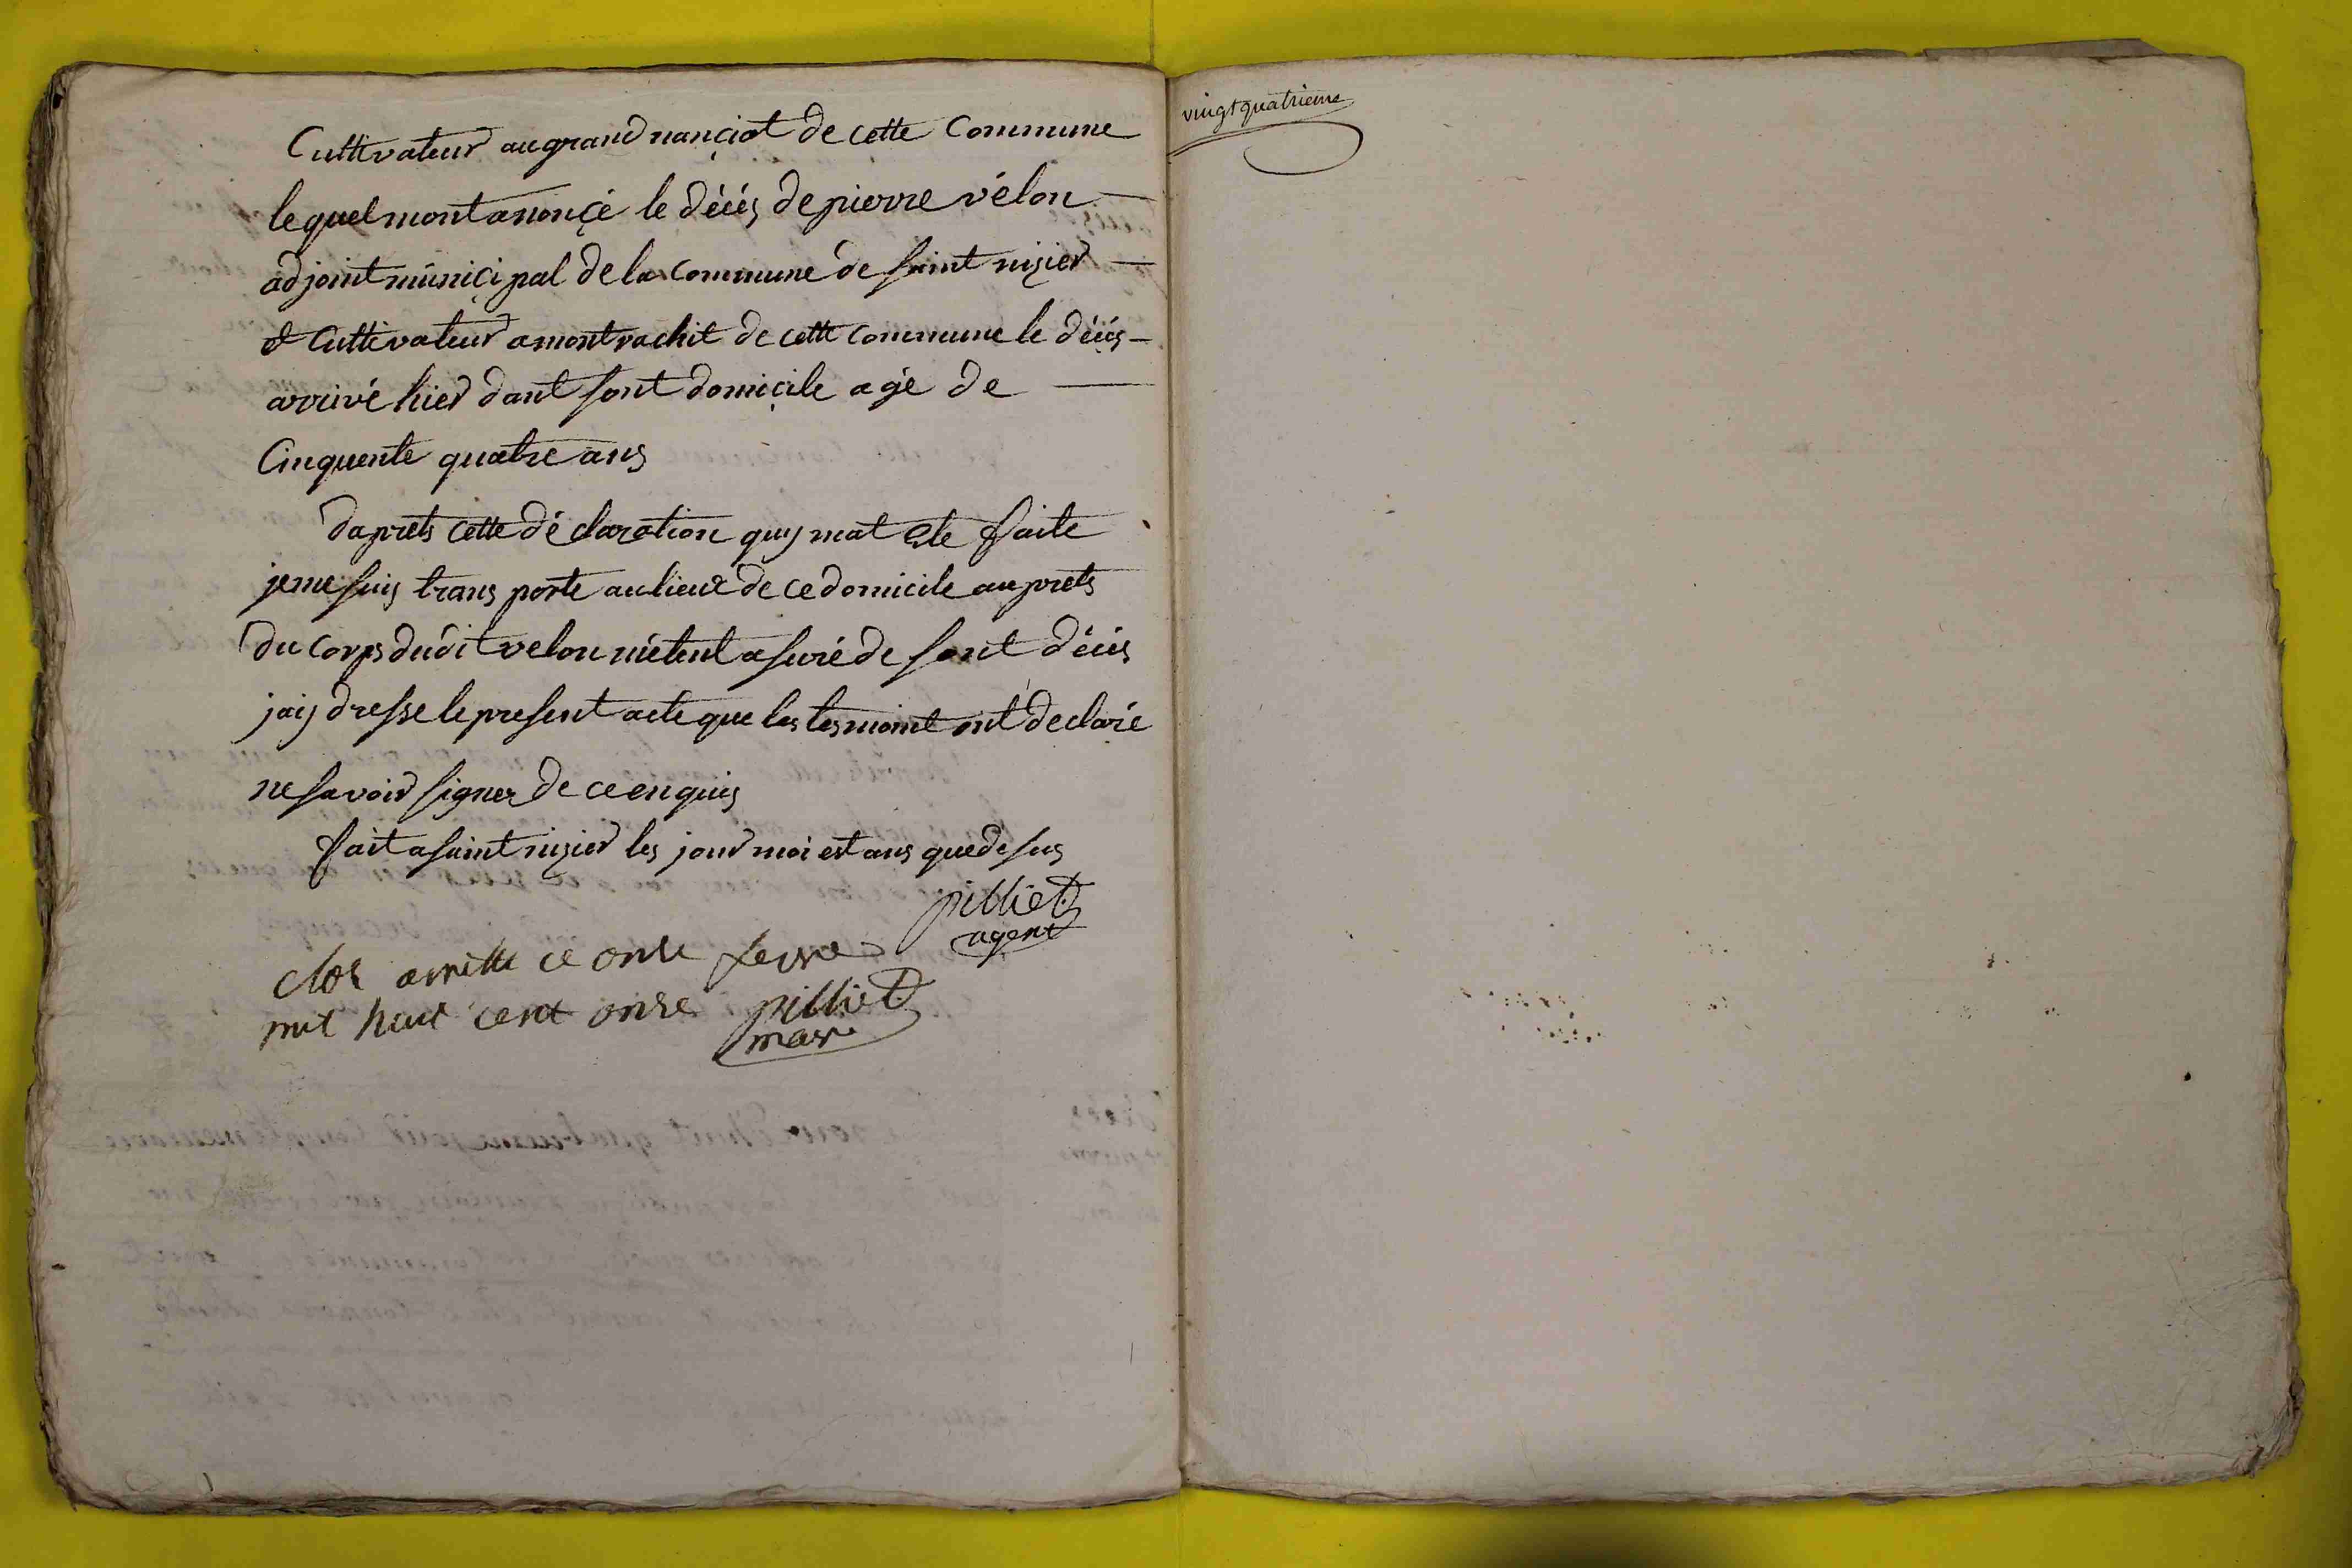 Cultivateur au grand nançiot de cette Commune
le quel mont anonçé le déces de pierre vélon
adjoint muniçipal de la commune de saint nizier
et Cultivateur a montrachit de cette commune le décés
arrivé hier dant sont domiçile agé de
Cinquente quatre ans
daprets cette déclaration quy mat ete faite
je me suis trans porte au lieux de ce domicile auprets
du corps dudit velon métent asuré de sont décés
jaij dresse le present acte que les tesmoint ont declaré
ne savoir signer de ce enquis
fait a saint nizier les jour moi et ans que desus
pilliet
agent
clos arrette ce onse fevre
mit huit cent onse pilliet
mare
vingt quatrieme